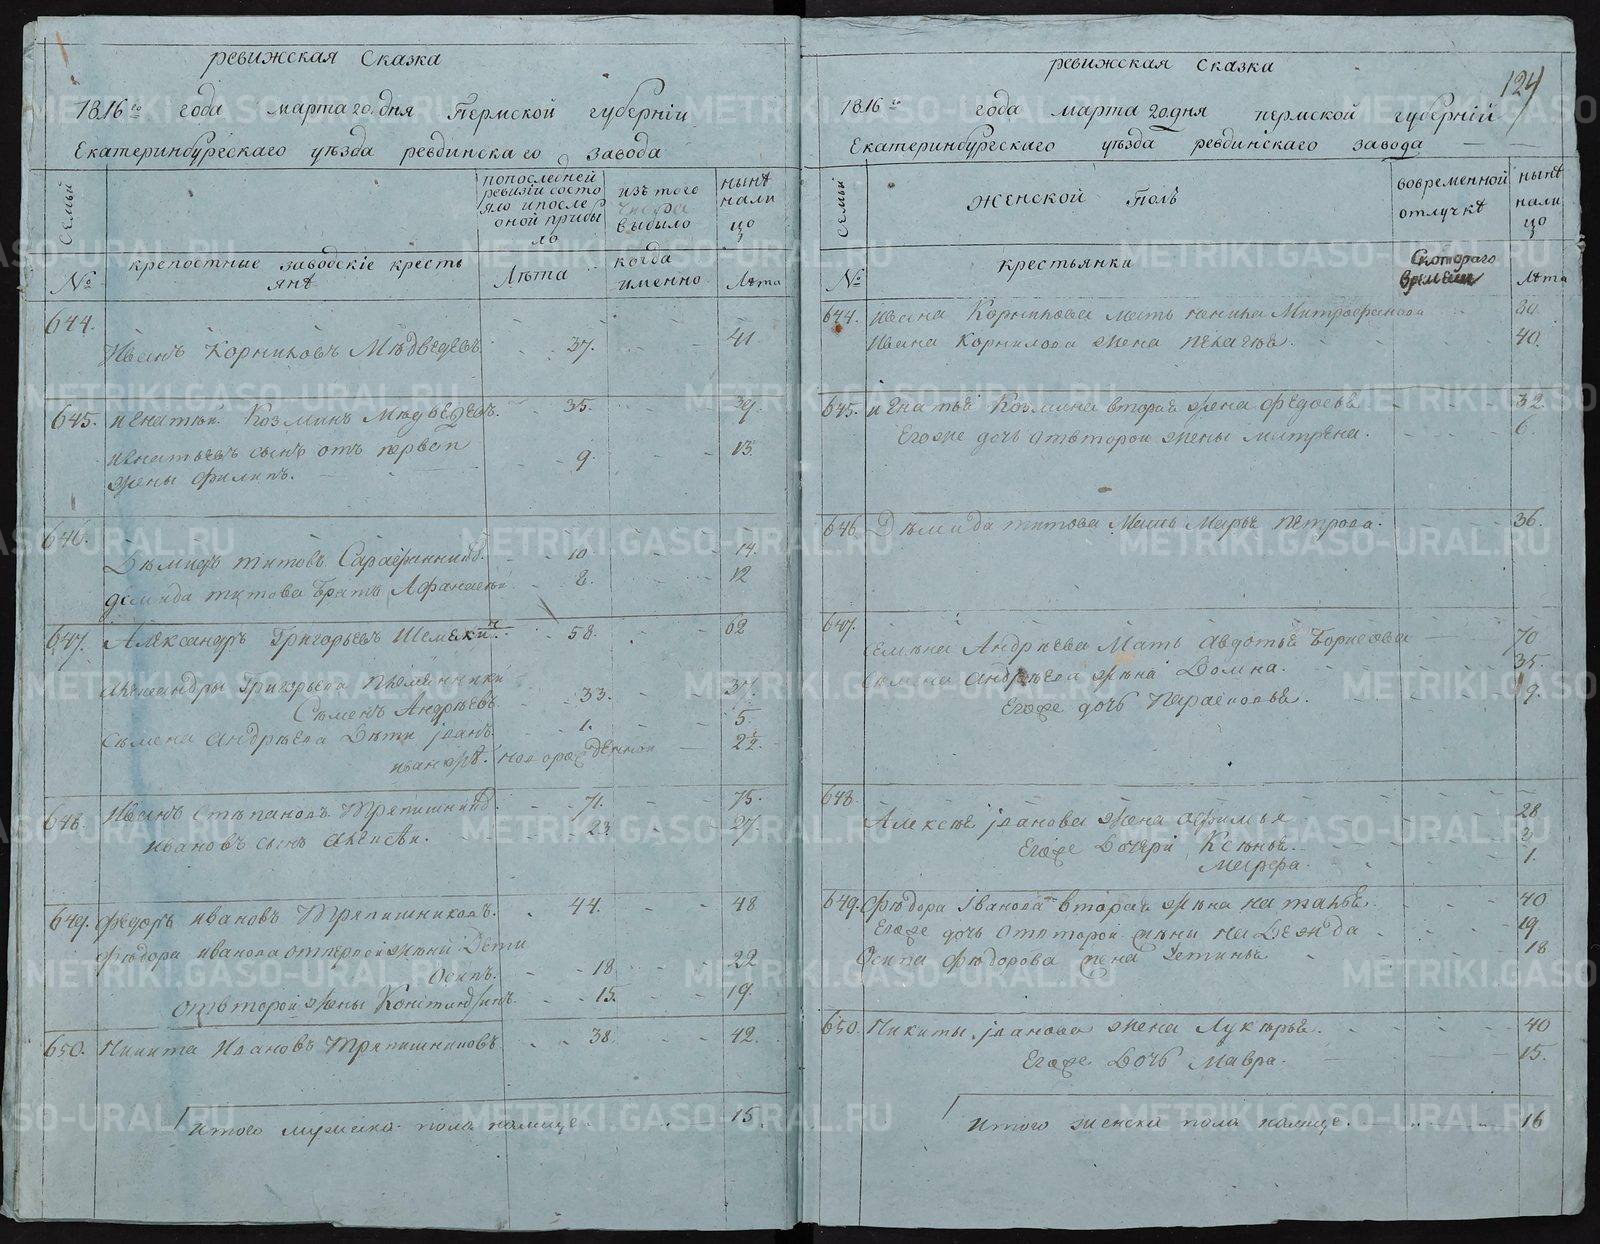 ревижская Сказка
1816го года марта 20. дня Пермской губерніи
Екатеринбургскаго уѣзда ревдинскаго завода
Семьи
попоследней ревизіи состояло ипоследоной прибыло
изъ того числа выбыло
нынѣ налицо
№
крепостные заводскіе крестьянѣ
Лѣта
когда именно
Лѣта
644.
Иванъ Корниловъ Мѣдведевъ. 37. 41
645. Игнатьй Козминъ Медведевъ. 35. 39
Игнатьевъ сынъ отъ первой 9. 13.
жены Филипъ.
646.
Дѣмидъ титовъ Сарафанниковъ. 10. 14.
демида титова братъ Афанасей 8. 12
647. Александръ Григорьевъ Шемякинъ. 58. 62
Александры Григорьева племенники
Сѣменъ Андрѣевъ. 33. 37.
Сѣмена Андрѣева Дѣти іванъ. 1. 5
новорожденной
648. Иванъ Степановъ Тряпишниковъ. 71. 75.
Ивановъ сынъ Алексѣй. 23. 27.
649. Федоръ Ивановъ Тряпишниковъ. 44. 48
Фѣдора Иванова отпервой жены Дѣти
Осипъ. 18 22
отвторой жены Констянтинъ. 15. 19.
650. Никита Ивановъ Тряпишниковъ 38. 42.
Итого мужеска пола налице 15.
124
ревижская Сказка
1816го года марта 20. дня пермской губерній
Екатеринбургскаго уѣзда ревдинскаго завода
Семьи
Женской Полъ
вовременной отлучкѣ
нынѣ налицо
№
крестьянки
Скотораго времени
Лѣта
644. Ивана Корнилова мать Митрофанова
Ивана Корнилова жена Пелагѣя. 40.
645. Игнатья Козмина вторая жена Федосья 32.
Егоже дочь отвторой жены Матрена. 6.
646. Дѣмида титова Мать Марья петрова. 36.
647.
Семѣна Андрѣева Мать Авдотья Борисова 70
Сѣмена Андрѣева жена Домна. 35.
Егоже дочь Парасковья. 9.
648.
Алексѣя іванова жена Афимья 28
Егоже Дочери Ксенья.
Марфа. 1.
649. Фѣдора Іванова вторая жена Наталья. 40
Егоже дочь отвторой жены Надежда 19.
Осипа Фѣдорова жена Устинья 18
650. Никиты іванова жена Лукѣрья. 40
Егоже Дочь Мавра. 15.
Итого женска пола налице. 16
METRIKI.GASO-URAL.RU